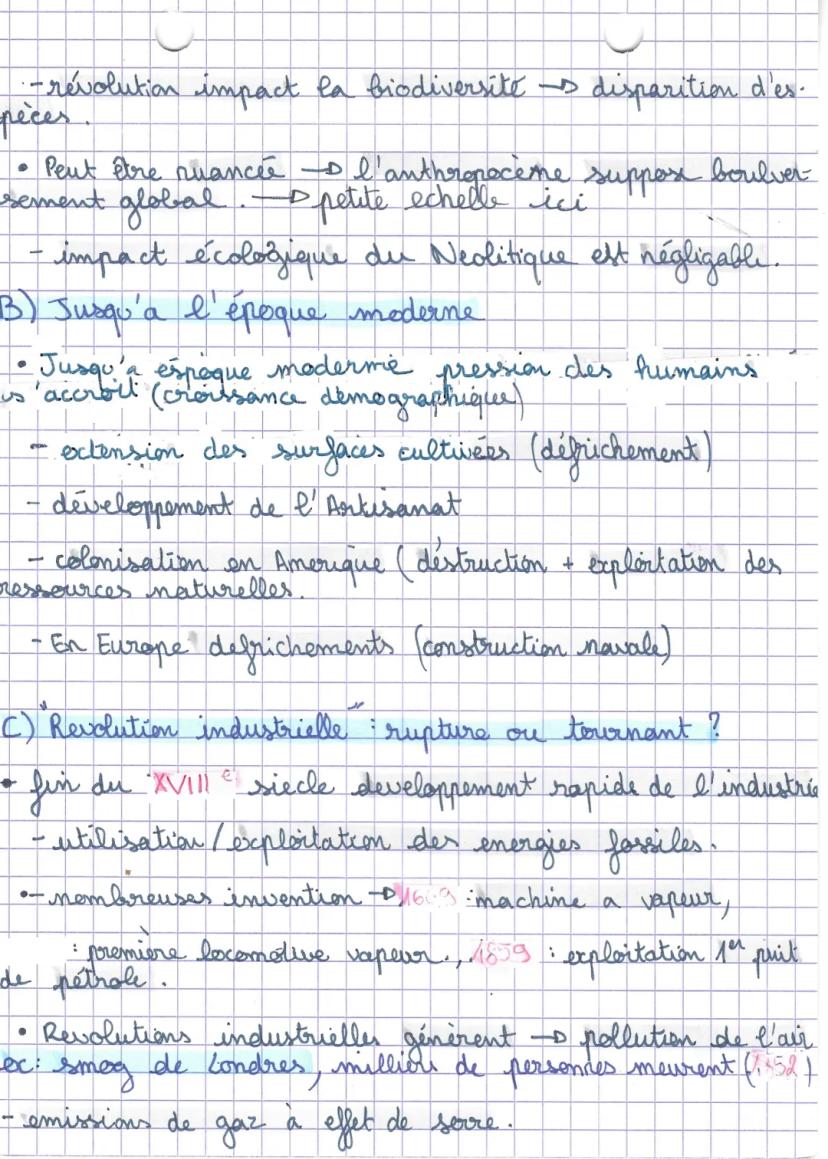 -révolution impact la biodiversité → disparition d'es-
pèces.
• Peut être nuancée → l'anthropocème suppose boulver-
sement global. → petite echelle ici
- impact écologique du Neolitique est négligable.
B) Jusqu'a l'époque moderne
• Jusqu'a espèque moderne pression des humains
s'accroît (croissance démographique)
- extension des surfaces cultivées (défrichement)
- développement de l'Artisanat
- colonisation en Amerique (déstruction + exploitation des
ressources naturelles.
- En Europe defrichements (construction navale)
C) "Revolution industrielle" : rupture ou tournant ?
• fin du XVIIIe siecle developpement rapide de l'industrie
- utilisation/exploitation des energies fossiles.
•- nombreuses invention → : machine a vapeur,
: première locomotive vapeur., 1859 : exploitation 1er puit
de pétrole.
• Revolutions industrielles génèrent → pollution de l'air
ex: smog de Londres, milliers de personnes meurent (1952)
- emissions de gaz à effet de serre.